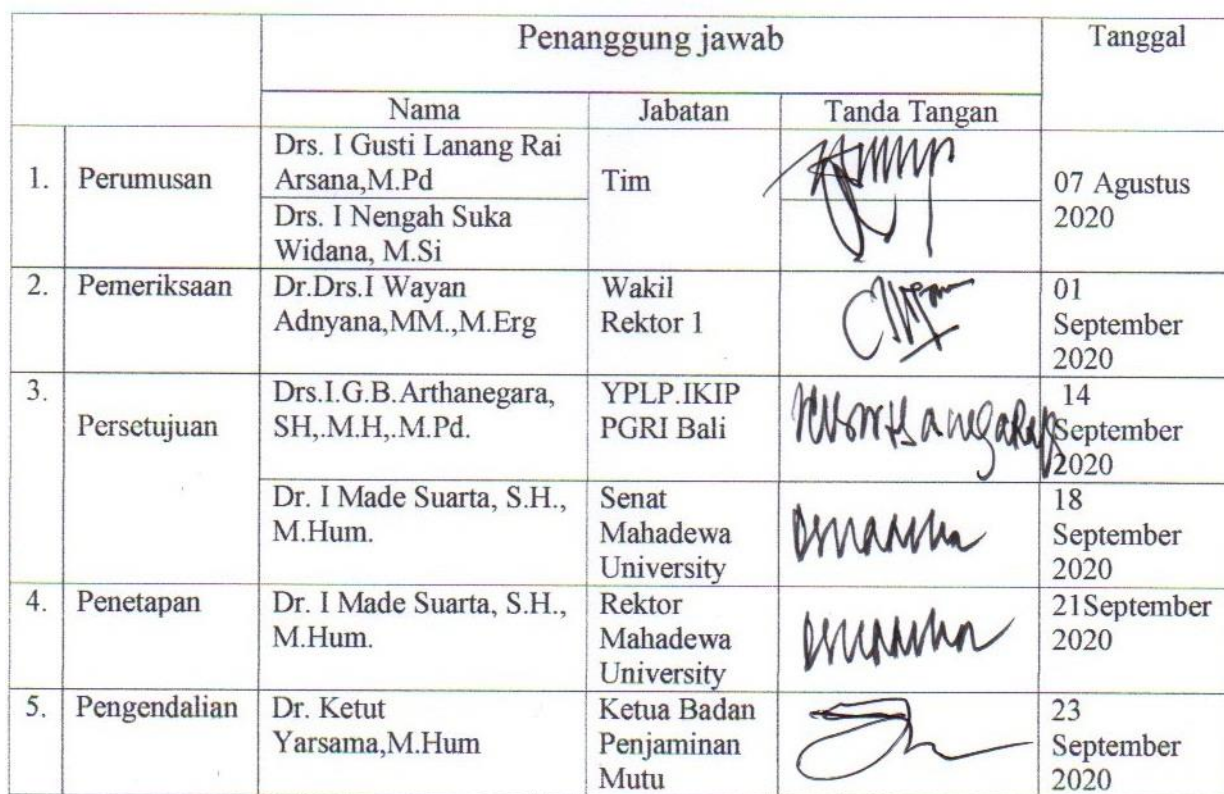 Penanggung jawab
Tanggal
Nama
Jabatan
Tanda Tangan
1.
Perumusan
Drs. I Gusti Lanang Rai
Arsana,M.Pd
Drs. I Nengah Suka
Widana, M.Si
Tim
07 Agustus
2020
2.
Pemeriksaan
Dr.Drs.I Wayan
Adnyana,MM.,M.Erg
Wakil
Rektor 1
01
September
2020
3.
Persetujuan
Drs.I.G.B.Arthanegara,
SH,.M.H,.M.Pd.
YPLP.IKIP
PGRI Bali
14
September
2020
Dr. I Made Suarta, S.H.,
M.Hum.
Senat
Mahadewa
University
18
September
2020
4.
Penetapan
Dr. I Made Suarta, S.H.,
M.Hum.
Rektor
Mahadewa
University
21September
2020
5.
Pengendalian
Dr. Ketut
Yarsama,M.Hum
Ketua Badan
Penjaminan
Mutu
23
September
2020